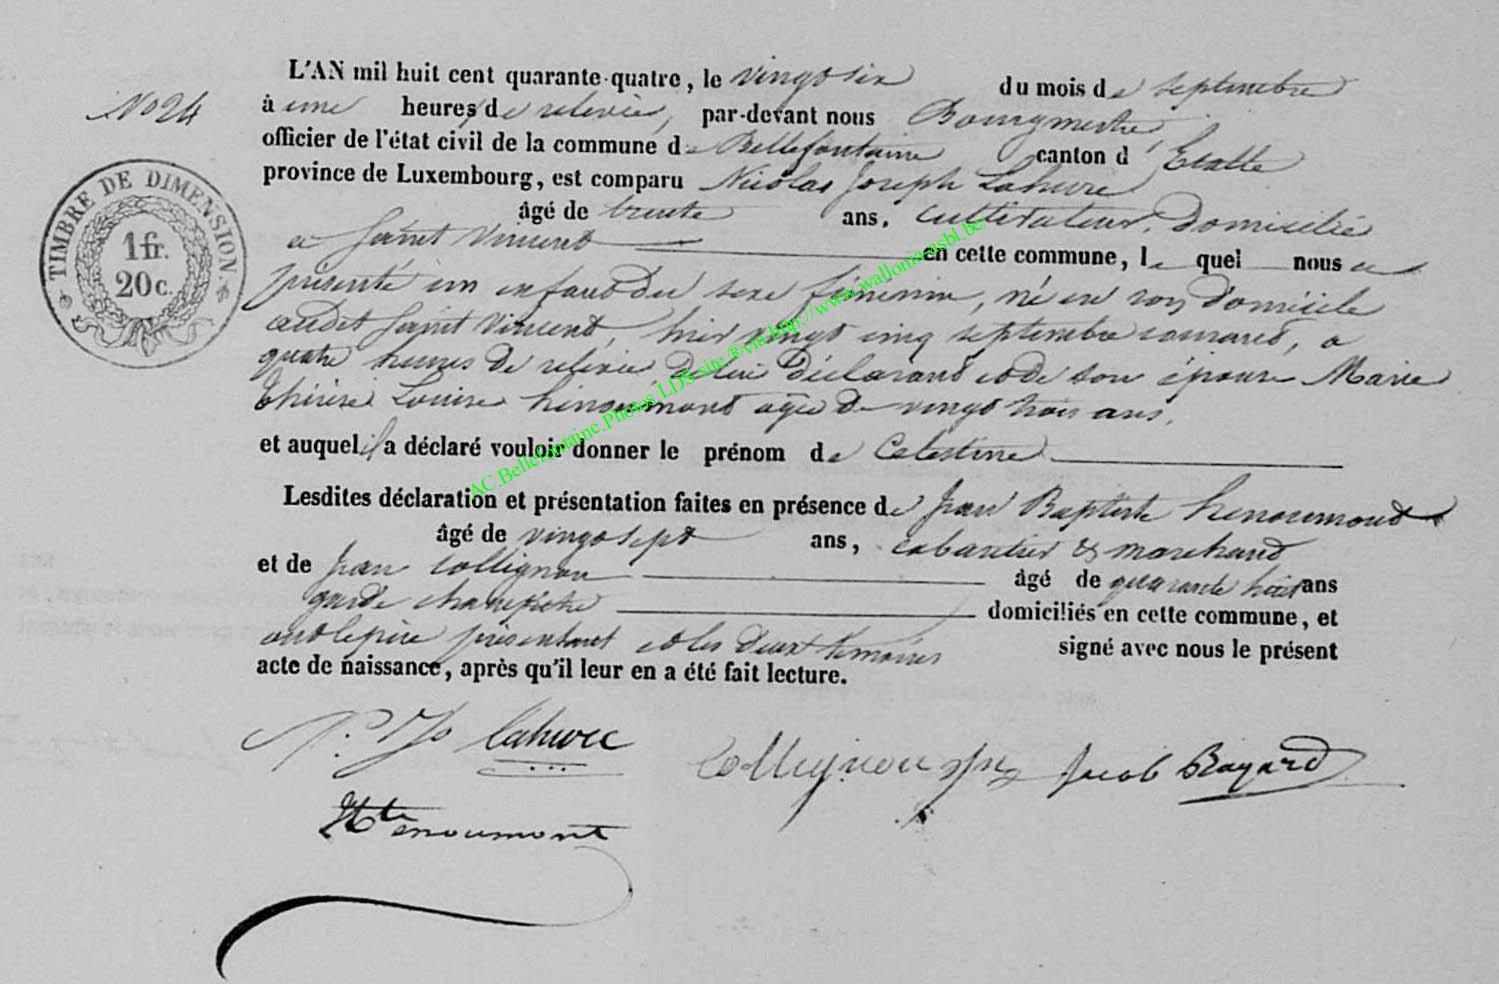 L'AN mil huit cent quarante-quatre, le vingt six du mois de septembre
No 24
à une heures de relevée, par-devant nous Bourgmestre
officier de l'état civil de la commune de Bellefontaine canton d'Etalle
province de Luxembourg, est comparu Nicolas Joseph Lahure
âgé de trente ans, cultivateur, domicilié
a Saint Vincent en cette commune, le quel nous a
présenté un enfant du sexe féminin, né en son domicile
audit Saint Vincent, hier vingt cinq septembre courant, a
quatre heures de relevée, de lui déclarant et de son épouse Marie
Thérèse Louise Henoumont agée de vingt trois ans.
et auquel il a déclaré vouloir donner le prénom de Celestine
Lesdites déclaration et présentation faites en présence de Jean Baptiste Henoumont
âgé de vingt sept ans, cabartier & marchand
et de Jean Collignon âgé de quarante huit ans
garde champêtre domiciliés en cette commune, et
ont le père présentant et les deux témoins signé avec nous le présent
acte de naissance, après qu'il leur en a été fait lecture.
N. Js Lahure
Collignon Jacob Bayard
Henoumont
TIMBRE DE DIMENSION.
1 fr.
20 c.
AC.Bellefontaine.Photos LDS site ® via http://www.wallonia.asbl.be/